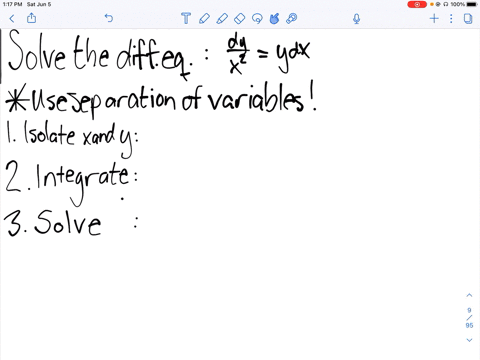 1:17 PM Sat Jun 5
100%
Solve the diff.eq. : dy/x² = ydx
*Use separation of variables!
1. Isolate x and y:
2. Integrate:
3. Solve :
9
/
95